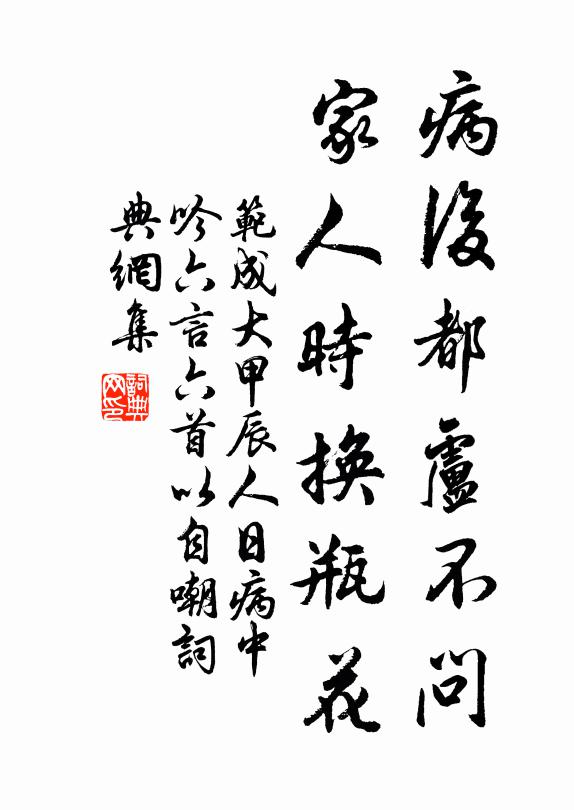 病後都盧不問
家人時換瓶花
範成大甲辰人日病中
吟六言六首以自嘲詞
典網集
詞典網印